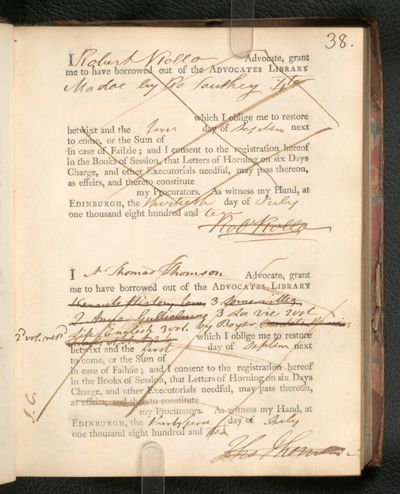 38.
I Robert Rollo Advocate, grant
me to have borrowed out of the ADVOCATES LIBRARY
Madoc by Ro Southey
which I oblige me to restore
betwixt and the day of Septem next
to come, or the Sum of
in case of Failzie; and I consent to the registration hereof
in the Books of Session, that Letters of Horning on six Days
Charge, and other Executorials needful, may pass thereon,
as effeirs, and thereto constitute
my Procurators. As witness my Hand, at
EDINBURGH, the day of July
one thousand eight hundred and ten
Robt Rollo
I Thomas Thomson Advocate, grant
me to have borrowed out of the ADVOCATES LIBRARY
3
3 vol.
English 3 vol. by Boyer
which I oblige me to restore
betwixt and the first day of Septem next
to come, or the Sum of
in case of Failzie; and I consent to the registration hereof
in the Books of Session, that Letters of Horning on six Days
Charge, and other Executorials needful, may pass thereon,
as effeirs, and thereto constitute
my Procurators. As witness my Hand, at
EDINBURGH, the day of July
one thousand eight hundred and ten
Tho Thomson